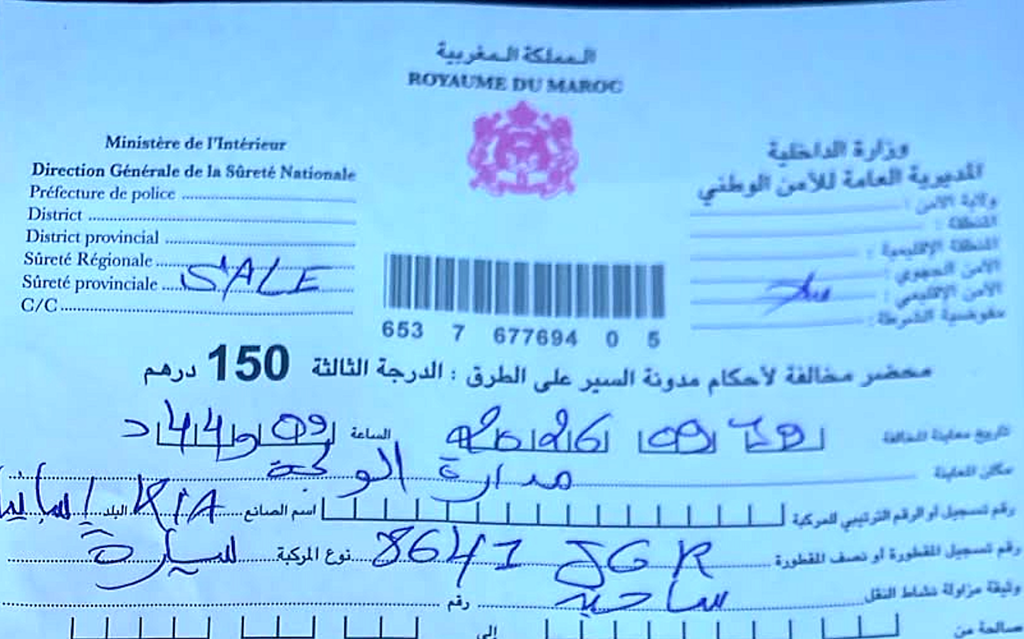 المملكة المغربية
ROYAUME DU MAROC
Ministère de l'Intérieur
Direction Générale de la Sûreté Nationale
Préfecture de police
District
District provincial
Sûreté Régionale
Sûreté provinciale SALE
C/C
وزارة الداخلية
المديرية العامة للأمن الوطني
ولاية الأمن :
المنطقة :
المنطقة الإقليمية :
الأمن الجهوي :
الأمن الإقليمي : سلا
مفوضية الشرطة :
653 7 677694 0 5
محضر مخالفة لأحكام مدونة السير على الطرق : الدرجة الثالثة 150 درهم
تاريخ معاينة المخالفة 2026 09 الساعة 09 44 د
مكان المعاينة مدارة
رقم تسجيل أو الرقم الترتيبي للمركبة اسم الصانع KIA البلد
رقم تسجيل المقطورة أو نصف المقطورة 8641 JGR نوع المركبة سيارة
وثيقة مزاولة نشاط النقل رقم
صالحة من إلى